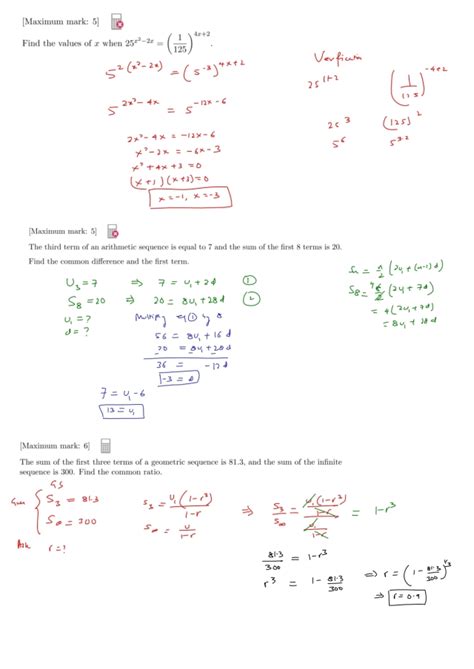 [Maximum mark: 5]
Find the values of x when 25^(x²−2x) = (1/125)^(4x+2)
5^(2(x²−2x)) = (5^(−3))^(4x+2)
5^(2x²−4x) = 5^(−12x−6)
2x²−4x = −12x−6
x²−2x = −6x−3
x²+4x+3=0
(x+1)(x+3)=0
x=−1, x=−3
25^(1+2) (1/125)^(−4+2)
25^3 (125)^2
5^6 5^(3·2)
[Maximum mark: 5]
The third term of an arithmetic sequence is equal to 7 and the sum of the first 8 terms is 20.
Find the common difference and the first term.
U₃=7 ⇒ 7 = u₁+2d ①
S₈=20 ⇒ 20 = 8u₁+28d ②
u₁=?
d=?
Multiply eq ① by 8
56 = 8u₁+16d
20 = 8u₁+28d
36 = −12d
−3 = d
7 = u₁−6
13 = u₁
Sₙ = n/2 (2u₁+(n−1)d)
S₈ = 8/2 (2u₁+7d)
= 4(2u₁+7d)
= 8u₁+28d
[Maximum mark: 6]
The sum of the first three terms of a geometric sequence is 81.3, and the sum of the infinite
sequence is 300. Find the common ratio.
GS
S₃ = 81.3
S∞ = 300
Ask r=?
S₃ = u₁(1−r³)/(1−r)
S∞ = u/(1−r)
⇒ S₃/S∞ = (u₁(1−r³)/(1−r))/(u/(1−r)) = 1−r³
81.3/300 = 1−r³
r³ = 1 − 81.3/300 ⇒ r = (1 − 81.3/300)^(1/3)
⇒ r=0.9